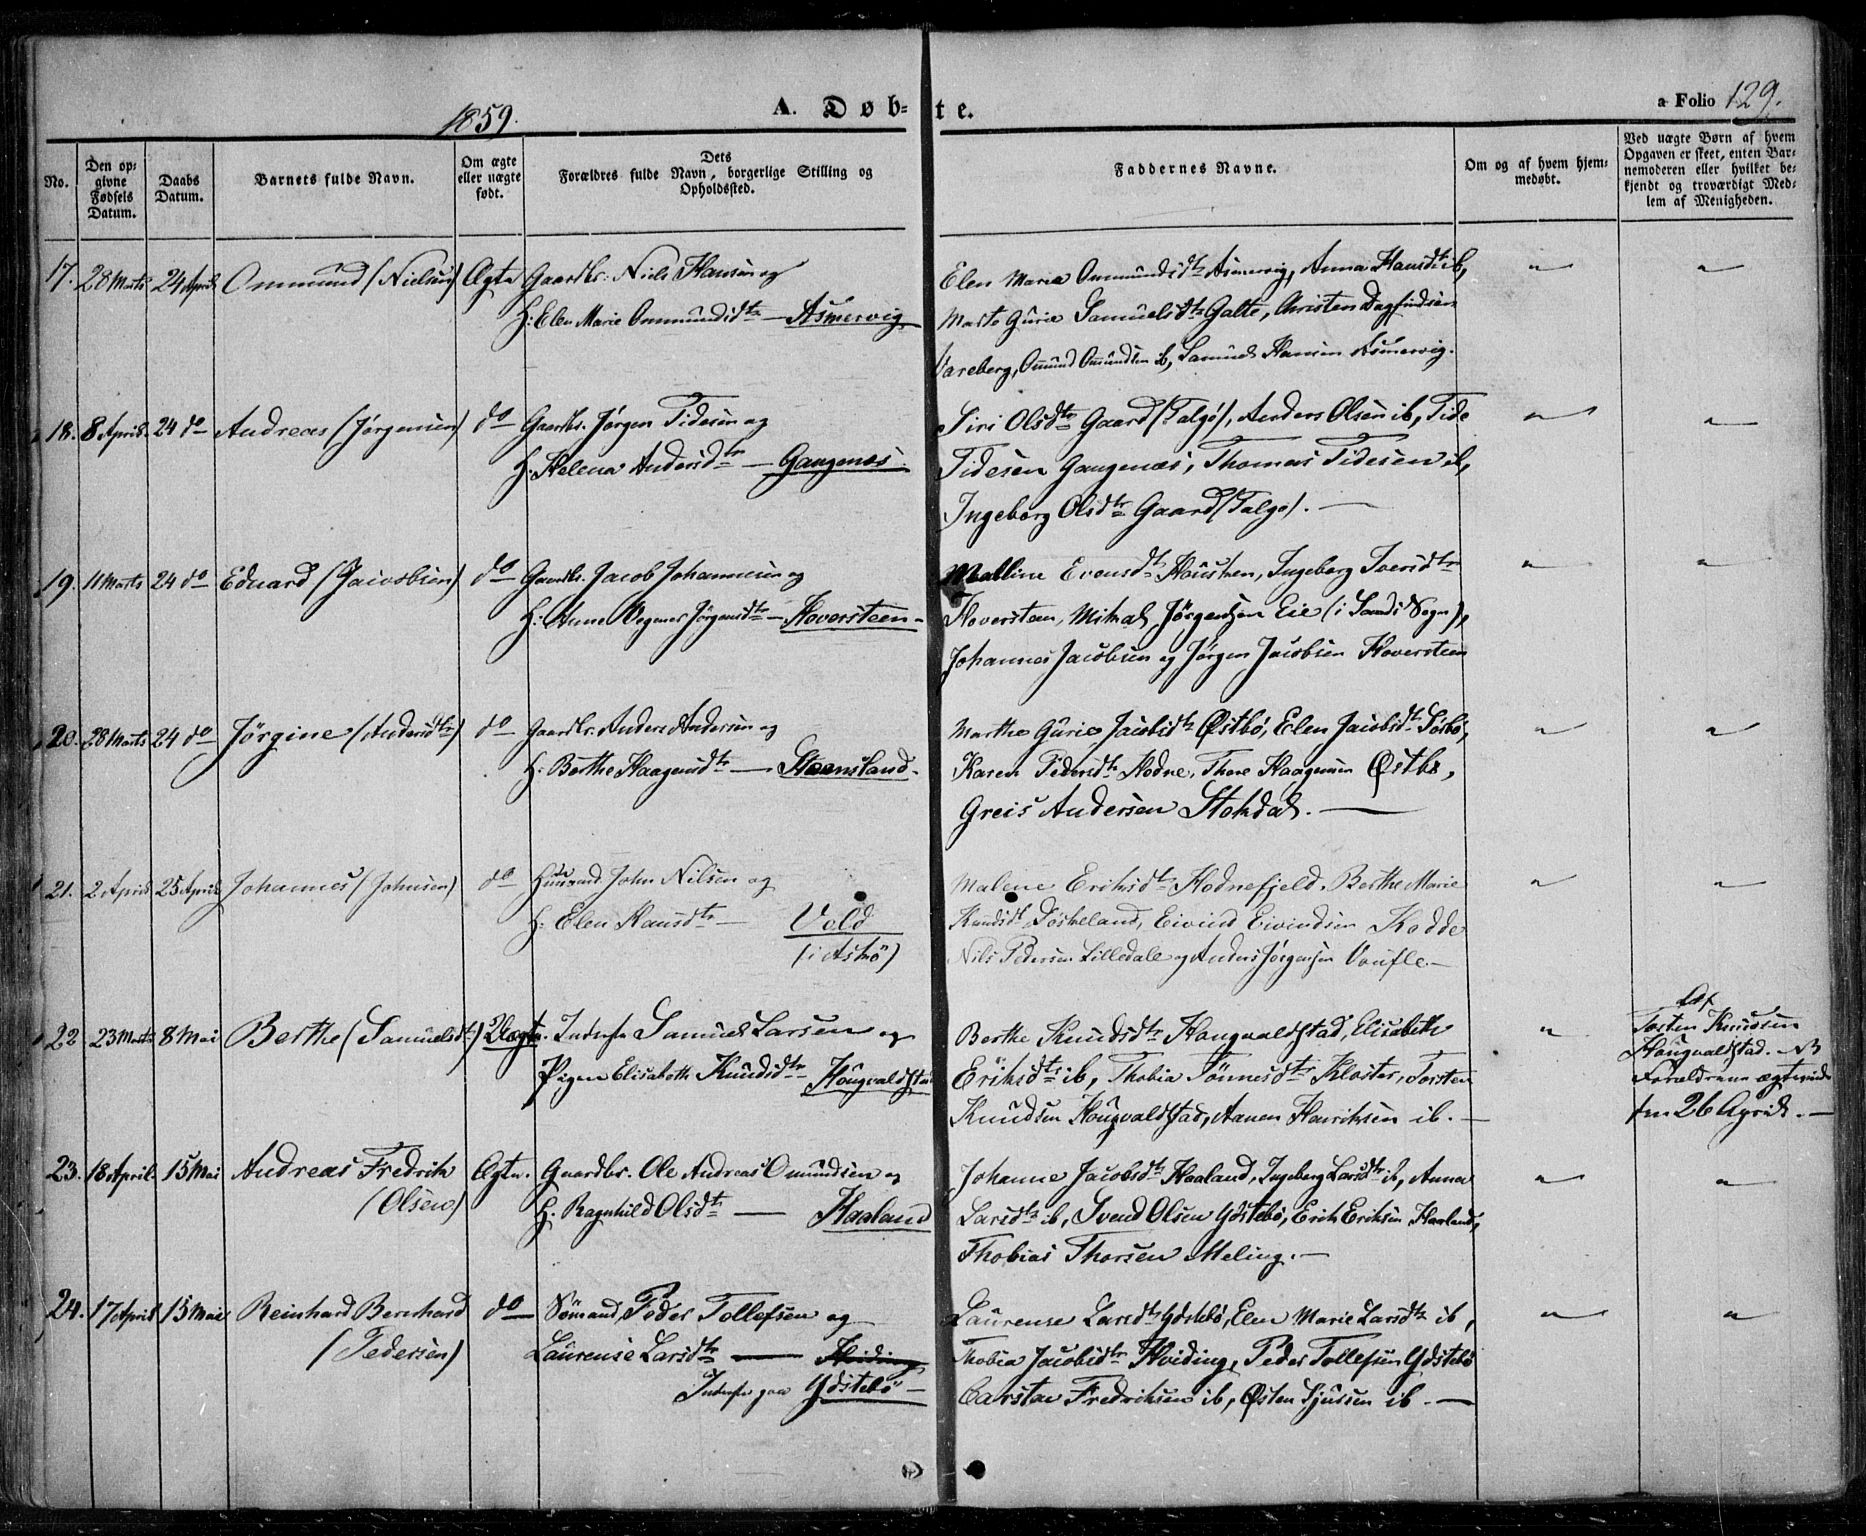 1859. A. Døb- te. a Folio 129.
No.
Den op-
givne
Fødsels
Datum.
Daabs
Datum.
Barnets fulde Navn.
Om ægte
eller uægte
født.
Dets
Forældres fulde Navn, borgerlige Stilling og
Opholdssted.
Faddernes Navne.
Om og af hvem hjem-
medøbt.
Ved uægte Børn af hvem
Opgaven er skeet, enten Bar-
nemoderen eller hvilket be-
kjendt og troværdigt Med-
lem af Menigheden.
17. 28 Marts 24 April Ommund (Nielsen) Ægte Gaardbr. Niels Hansen og
H: Elen Marie Ommundsdtr — Asmervig
Elen Maria Ommundsdtr Asmervig, Anna Hansdtr ib,
Marte Gurie Samuelsdtr Galte, Christen Dagfindsen
Vareberg, Omund Omundsen ib, Samuel Hansen Asmervig.
18. 8 April. 24 do Andreas (Jørgensen) do Gaardbr. Jørgen Tidesen og
H. Helena Andersdtr — Gangenæs.
Siri Olsdtr Gaard (Talgø), Anders Olsen ib, Tide
Tidesen Gangenæs, Thomas Tidesen ib,
Ingeborg Olsdtr Gaard (Talgø). —
19. 11 Marts 24 do Eduard (Jacobsen) do Gaardbr. Jacob Johannesen og
H: Anne Jørgensdtr — Hoversteen -
Malline Evensdtr Ingeborg Iversdtr
Hoversteen, Mikal Jørgensen Eie (i Sands Sogn),
Johannes Jacobsen og Jørgen Jacobsen Hoversteen
20. 28 Marts 24 do Jørgine (Andersdtr) do Gaardbr. Anders Andersen og
H. Berthe Haagensdtr — Steensland.
Marthe Gurie Jacobsdtr Østbø, Elen Jacobsdtr Sørbø,
Karen Pedersdtr Hodne, Thore Haagensen Østbø,
Greis Andersen Stokdal. —
21. 2 April 25 April Johannes (Johnsen) do Huusmand John Nilsen og
H: Elen Hansdtr — Vold
(i Askø)
Malene Eriksdtr Hodnefjeld. Berthe Marie
Knudsdtr Døskeland, Eivind Eivindsen Kodde
Nils Pedersen Lilledale og Anders Jørgensen —
22 23 Marts 8 Mai Berthe (Samuelsdtr) Uægte. Inderste Samuel Larsen og
Pigen Elisabeth Knudsdtr Hougvaldstad
Berthe Knudsdtr Haugvaldstad, Elisabeth
Eriksdtr ib, Thobia Tønnesdtr Kloster, Torsten
Knudsen Hougvaldstad, Aanen Henriksen ib. —
Af
Tosten Knudsen
Haugvaldstad. — NB
Forældrene ægteviede
den 26 April. —
23. 18 April. 15 Mai Andreas Fredrik
(Olsen)
Ægte. Gaardbr. Ole Andreas Omundsen og
H. Ragnhild Olsdtr — Haaland
Johanne Jacobsdtr Haaland, Ingeborg Larsdtr ib, Anna
Larsdtr ib, Svend Olsen Ydstebø, Erik Eriksen Haaland,
Thobias Thorsen Meling. —
24. 17 April 15 Mai Reinhard Bernhard
(Pedersen)
do Sømand, Peder Tollefsen og
Laurense Larsdtr — Hviding
Inderste paa Ydstebø —
Laurense Larsdtr Ydstebø, Elen Marie Larsdtr ib,
Thobia Jacobsdtr Hviding, Peder Tollefsen Ydstebø
Carsten Fredriksen ib, Østen Sjursen ib. —